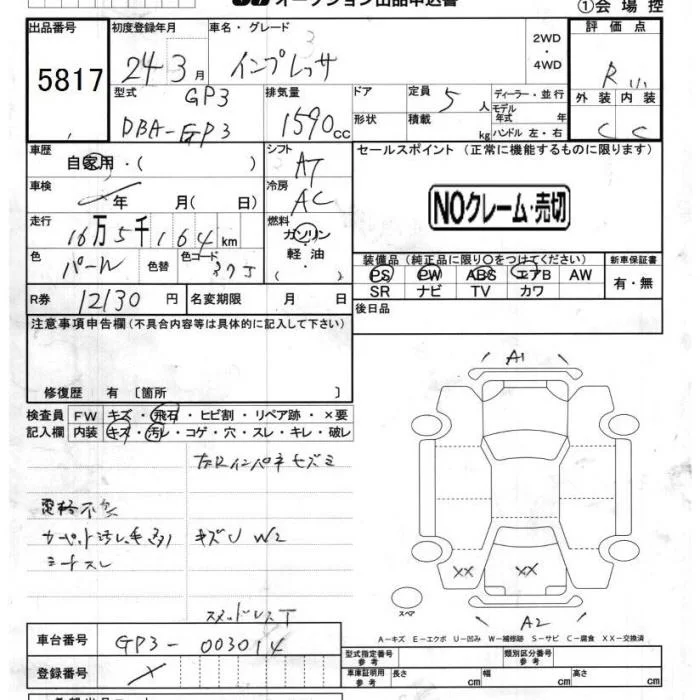 オークション出品申込書
①会場控
出品番号 初度登録年月 車名・グレード 評価点
5817 24 3月 インプレッサ 2WD・4WD R
型式 GP3 排気量 ドア 定員 5人 ディーラー・並行 外装 内装
DBA-GP3 1590cc 形状 積載 kg モデル年式 年 ハンドル 左・右 C C
車歴 自家用・( ) シフト AT セールスポイント (正常に機能するものに限ります)
車検 年 月( 日) 冷房 AC NOクレーム・売切
走行 16万5千164km 燃料 ガソリン・軽油・( )
色 パール 色替 色コード 37J 装備品 (純正品に限り○をつけてください) 新車保証書
PS PW ABS エアB AW 有・無
SR ナビ TV カワ
R券 12130円 名変期限 月 日 後日品
注意事項申告欄(不具合内容等は具体的に記入して下さい)
修復歴 有 [箇所 ]
検査員 FW キズ・飛石・ヒビ割・リペア跡・×要
記入欄 内装 キズ・汚レ・コゲ・穴・スレ・キレ・破レ
A1
左Rインパネキズミ
電格不良
カーペット汚レ キズU W2
シートスレ
XX XX
スペア
スマートレスT
A2
A-キズ E-エクボ U-凹み W-補修跡 S-サビ C-腐食 XX-交換済
車台番号 GP3-003014
型式指定番号参考 類別区分番号参考
登録番号 ×
車庫証明用参考 長さ cm 幅 cm 高さ cm